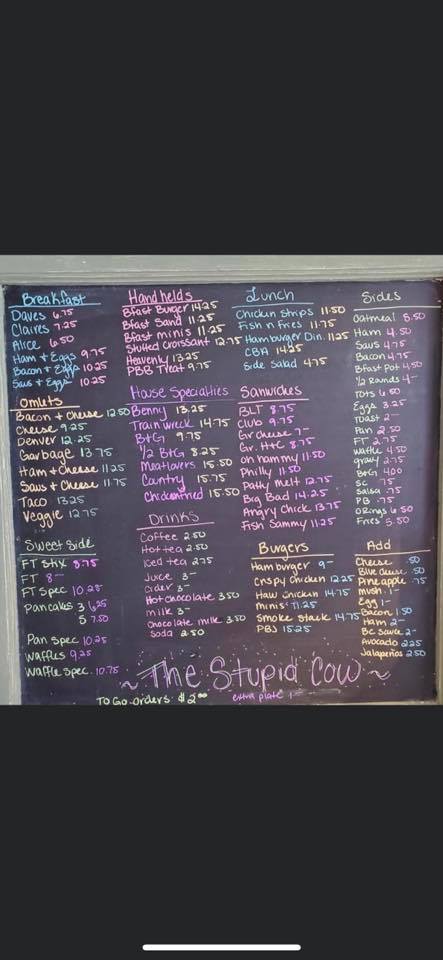 Breakfast
Daves 6.75
Claires 7.25
Alice 6.50
Ham & Eggs 9.75
Bacon & Eggs 10.25
Saus & Eggs 10.25
Omlets
Bacon & Cheese 12.50
Cheese 9.25
Denver 12.25
Garbage 13.75
Ham & Cheese 11.25
Saus & Cheese 11.75
Taco 13.25
Veggie 12.75
Sweet Side
FT Stix 8.75
FT 8-
FT Spec 10.25
Pancakes 3 6.25
5 7.50
Pan Spec 10.25
Waffles 9.25
Waffle Spec. 10.75
Handhelds
Bfast Burger 14.25
Bfast Sand 11.25
Bfast minis 11.25
Stuffed Croissant 12.75
Heavenly 13.25
PBB Treat 9.75
House Specialties
Benny 13.25
Train wreck 14.75
B+G 9.75
1/2 B+G 8.25
Meatlovers 15.50
Country 15.75
Chickenfried 15.50
Drinks
Coffee 2.50
Hot tea 2.50
Iced tea 2.75
Juice 3-
Cider 3-
Hot chocolate 3.50
milk 3-
Chocolate milk 3.50
Soda 2.50
Lunch
Chicken Strips 11.50
Fish n Fries 11.75
Hamburger Din. 11.25
CBA 14.25
Side Salad 4.75
Sanwiches
BLT 8.75
Club 9.75
Gr Cheese 7-
Gr. H&C 8.75
Oh hammy 11.50
Philly 11.50
Patty Melt 12.75
Big Bad 14.25
Angry Chick 13.75
Fish Sammy 11.25
Burgers
Hamburger 9-
Crispy Chicken 12.25
Haw Chicken 14.75
Minis 11.25
Smoke Stack 14.75
PBJ 15.25
Sides
Oatmeal 5.50
Ham 4.50
Saus 4.75
Bacon 4.75
Bfast Pot 4.50
1/2 Rounds 4-
Tots 6.50
Eggs 3.25
Toast 2-
Pan 2.50
FT 2.75
Waffle 4.50
gravy 2.75
B+G 4.00
SC .75
Salsa .75
PB .75
O Rings 6.50
Fries 5.50
Add
Cheese .50
Blue Cheese .50
Pineapple .75
mush 1-
Egg 1-
Bacon 1.50
Ham 2-
BC Sauce 2-
Avocado 2.25
Jalapeños 2.50
~ The Stupid Cow ~
To Go orders $2.00
extra plate 1-